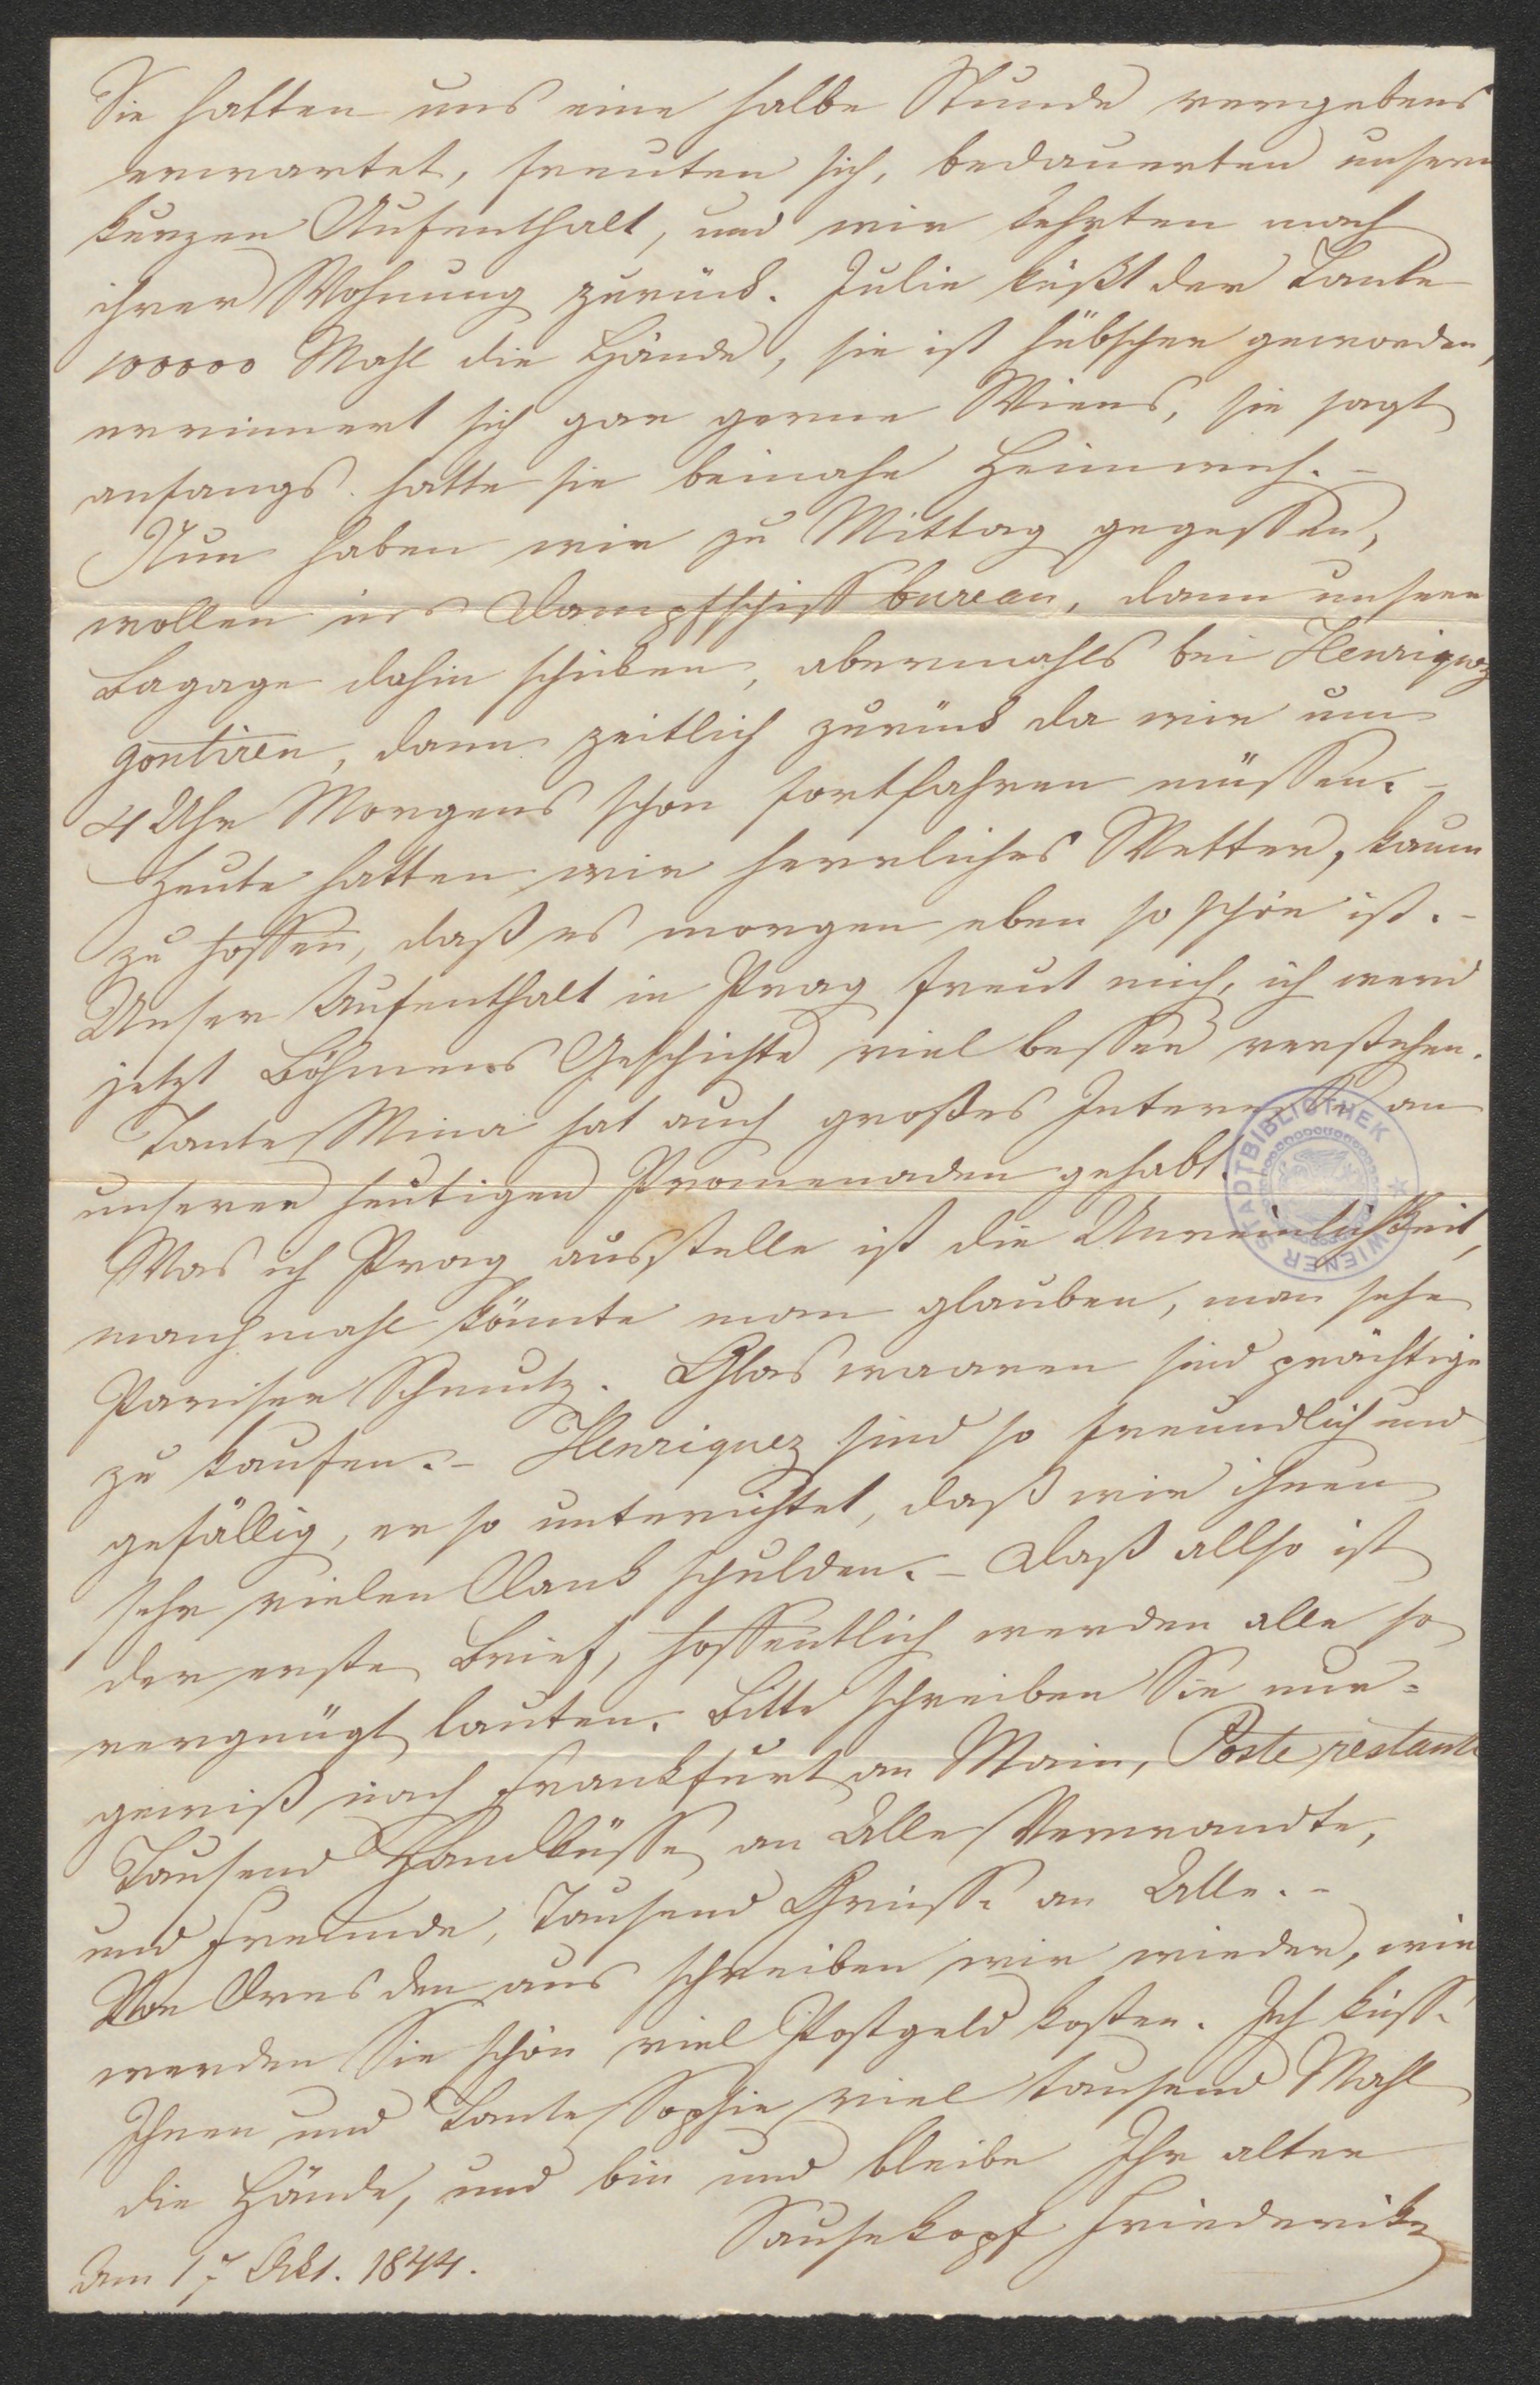 Sie hatten uns eine halbe Stunde vergebens
erwartet, freuten sich, bedauerten unsern
kurzen Aufenthalt, und wir kehrten nach
ihrer Wohnung zurück. Julie küßt der Tante
100000 Mahl die Hände, sie ist hübscher geworden,
errinnert sich gar gerne Wiens, sie sagt
anfangs hatte sie beinahe Heimweh. –
Nun haben wir zu Mittag gegessen,
wollen ins Dampfschiff bureau, dann unsere
Bagage dahin schicken, abermahls bei Henriquez
goutiren, dann zeitlich zurück da wir um
4 Uhr Morgens schon fortfahren müssen. –
Heute hatten wir herrliches Wetter, kaum
zu hoffen, daß es morgen eben so schön ist. –
Unser Aufenthalt in Prag freut mich, ich werd
jetzt Böhmens Geschichte viel besser verstehen.
Tante Mina hat auch großes Interesse an
unseren heutigen Promenaden gehabt.
Was ich Prag ausstelle ist die Unreinlichkeit,
manchmahl könnte man glauben, man sehe
Pariser Schmutz. Glaswaaren sind prächtige
zu kaufen. – Henriquez sind so freundlich und
gefällig, er so unterrichtet, daß wir ihnen
sehr vielen Dank schulden. – Daß allso ist
der erste Brief, hoffentlich werden alle so
vergnügt lauten. Bitte schreiben Sie nur
gewiß nach Frankfurt am Main, Poste restante
Tausend Handküsse an Alle Verwandte,
und Freunde, Tausend Grüsse an Alle. –
Von Dresden aus schreiben wir wieder, wir
werden Sie schön viel Postgeld kosten. Ich küsse
Ihnen und Tante Sophie viel tausend Mahl
die Hände, und bin und bleibe Ihr alter
Sausekopf Friederike
Am 17 Okt. 1844.
WIENER STADTBIBLIOTHEK